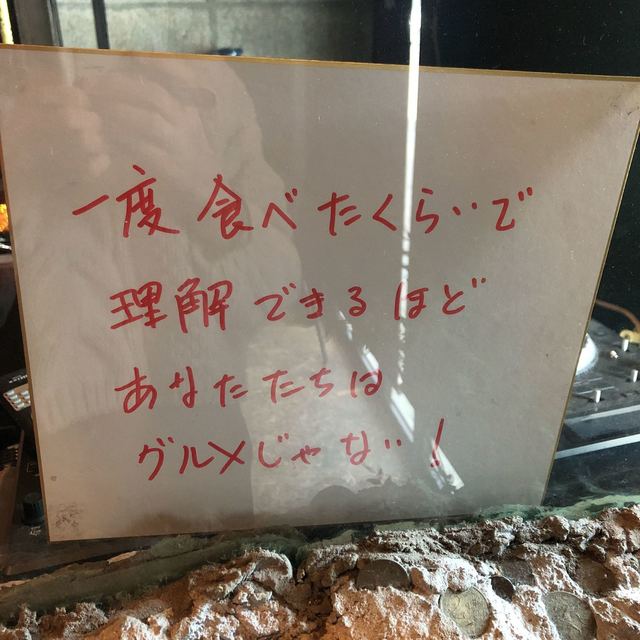 一度食べたくらいで
理解できるほど
あなたたちは
グルメじゃない!